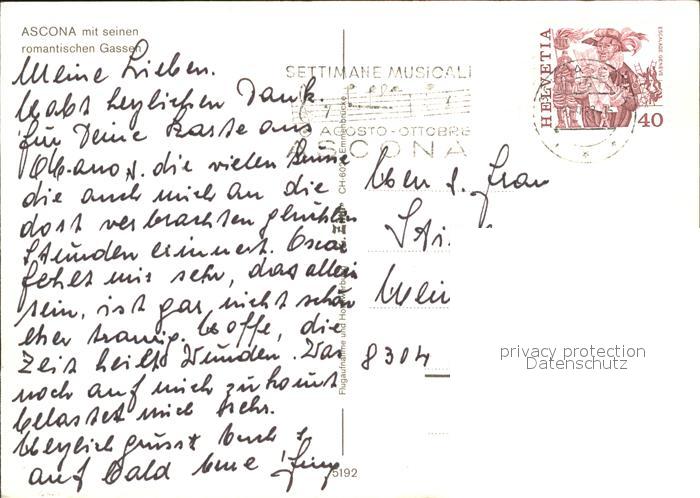 ASCONA mit seinen
romantischen Gassen
Meine Lieben.
Habt herzlichen Dank
für Deine Karte aus
die vielen
die auch mich an die
dort verbrachten
Stunden erinnert. Oscar
fehlt mir sehr, das allein
sein, ist gar nicht schön
eher traurig. Hoffe, die
Zeit heilt Wunden. Was
noch auf mich zukommt
belastet mich sehr.
Herzlich grüsst Euch
auf bald Eure
SETTIMANE MUSICALI
AGOSTO-OTTOBRE
ASCONA
HELVETIA
ESCALADE GENEVE
40
Frau
8304
privacy protection
Datenschutz
5192